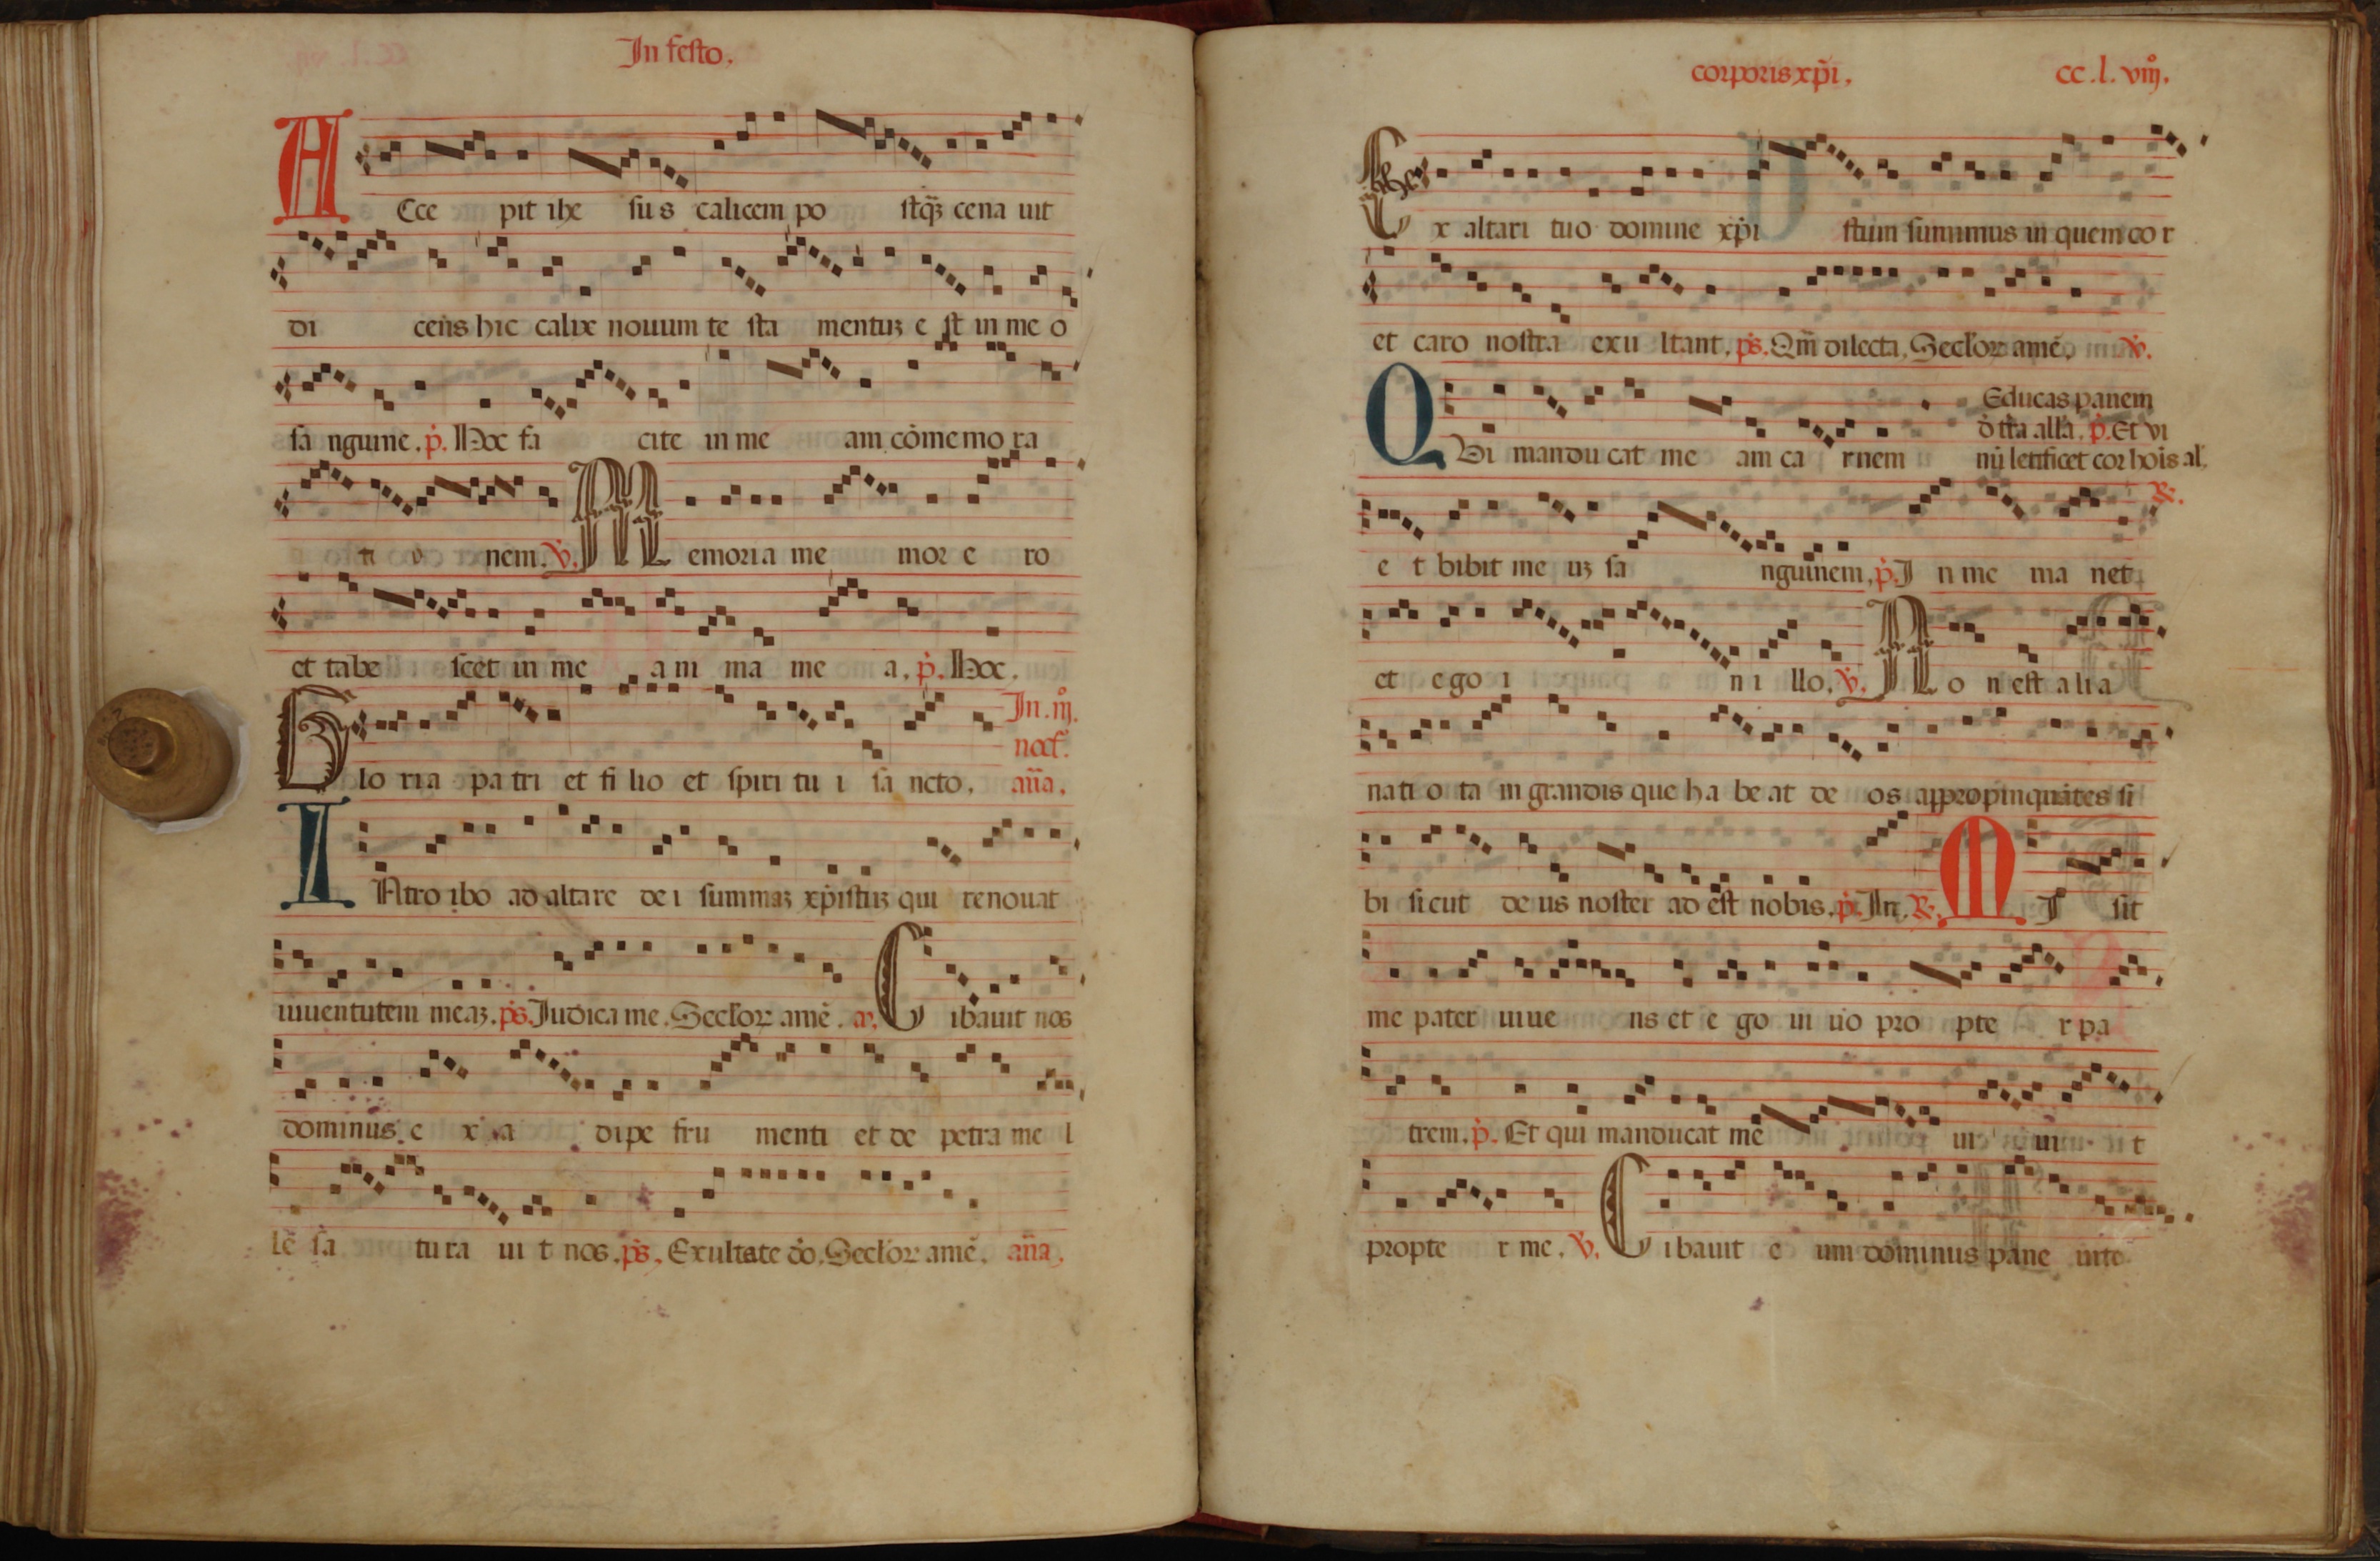 In festo.
ACce pit ihe sus calicem po stq̄ʒ cena uit
di cens hic calix nouum te sta mentuʒ e st in me o
sa nguine. p̄. Hoc fa cite in me am cōmemo ra
ti o nem. v̄. Memoria me mor e ro
et tabe scet in me a ni ma me a. p̄. Hoc.
Glo ria pa tri et fi lio et spiri tu i sa ncto.
In .iij.
noct̄.
an̄a.
INtro ibo ad altare de i summaʒ xp̄istuʒ qui renouat
iuuentutem meaʒ. ps. Iudica me. Seclor amē. a. Cibauit nos
dominus e x a dipe fru menti et de petra me l
le sa tura ui t nos. ps. Exultate dō. Seclor amē. an̄a.
corporis xp̄i. cc.l.viij.
Ex altari tuo domine xp̄i stum sumimus in quem co r
et caro nostra exu ltant. ps. Qm̄ dilecta. Seclor amē. v̄.
Educas panem
d̄ tr̄a all̄a. p̄. Et vi
QVi mandu cat me am ca rnem
nū letificet cor hoīs al̄.
℟.
e t bibit me uʒ sa nguinem. p̄. I n me ma net
et ego i n i llo. v̄. No n est alia
nati o ta m grandis que ha be at de os appropinquātes si
bi sicut de us noster ad est nobis. p̄. In. ℟. MI sit
me pater uiue ns et e go ui uo pro pte r pa
trem. p̄. Et qui manducat me ui ui t
propte r me. v̄. Cibauit e um dominus pane uite